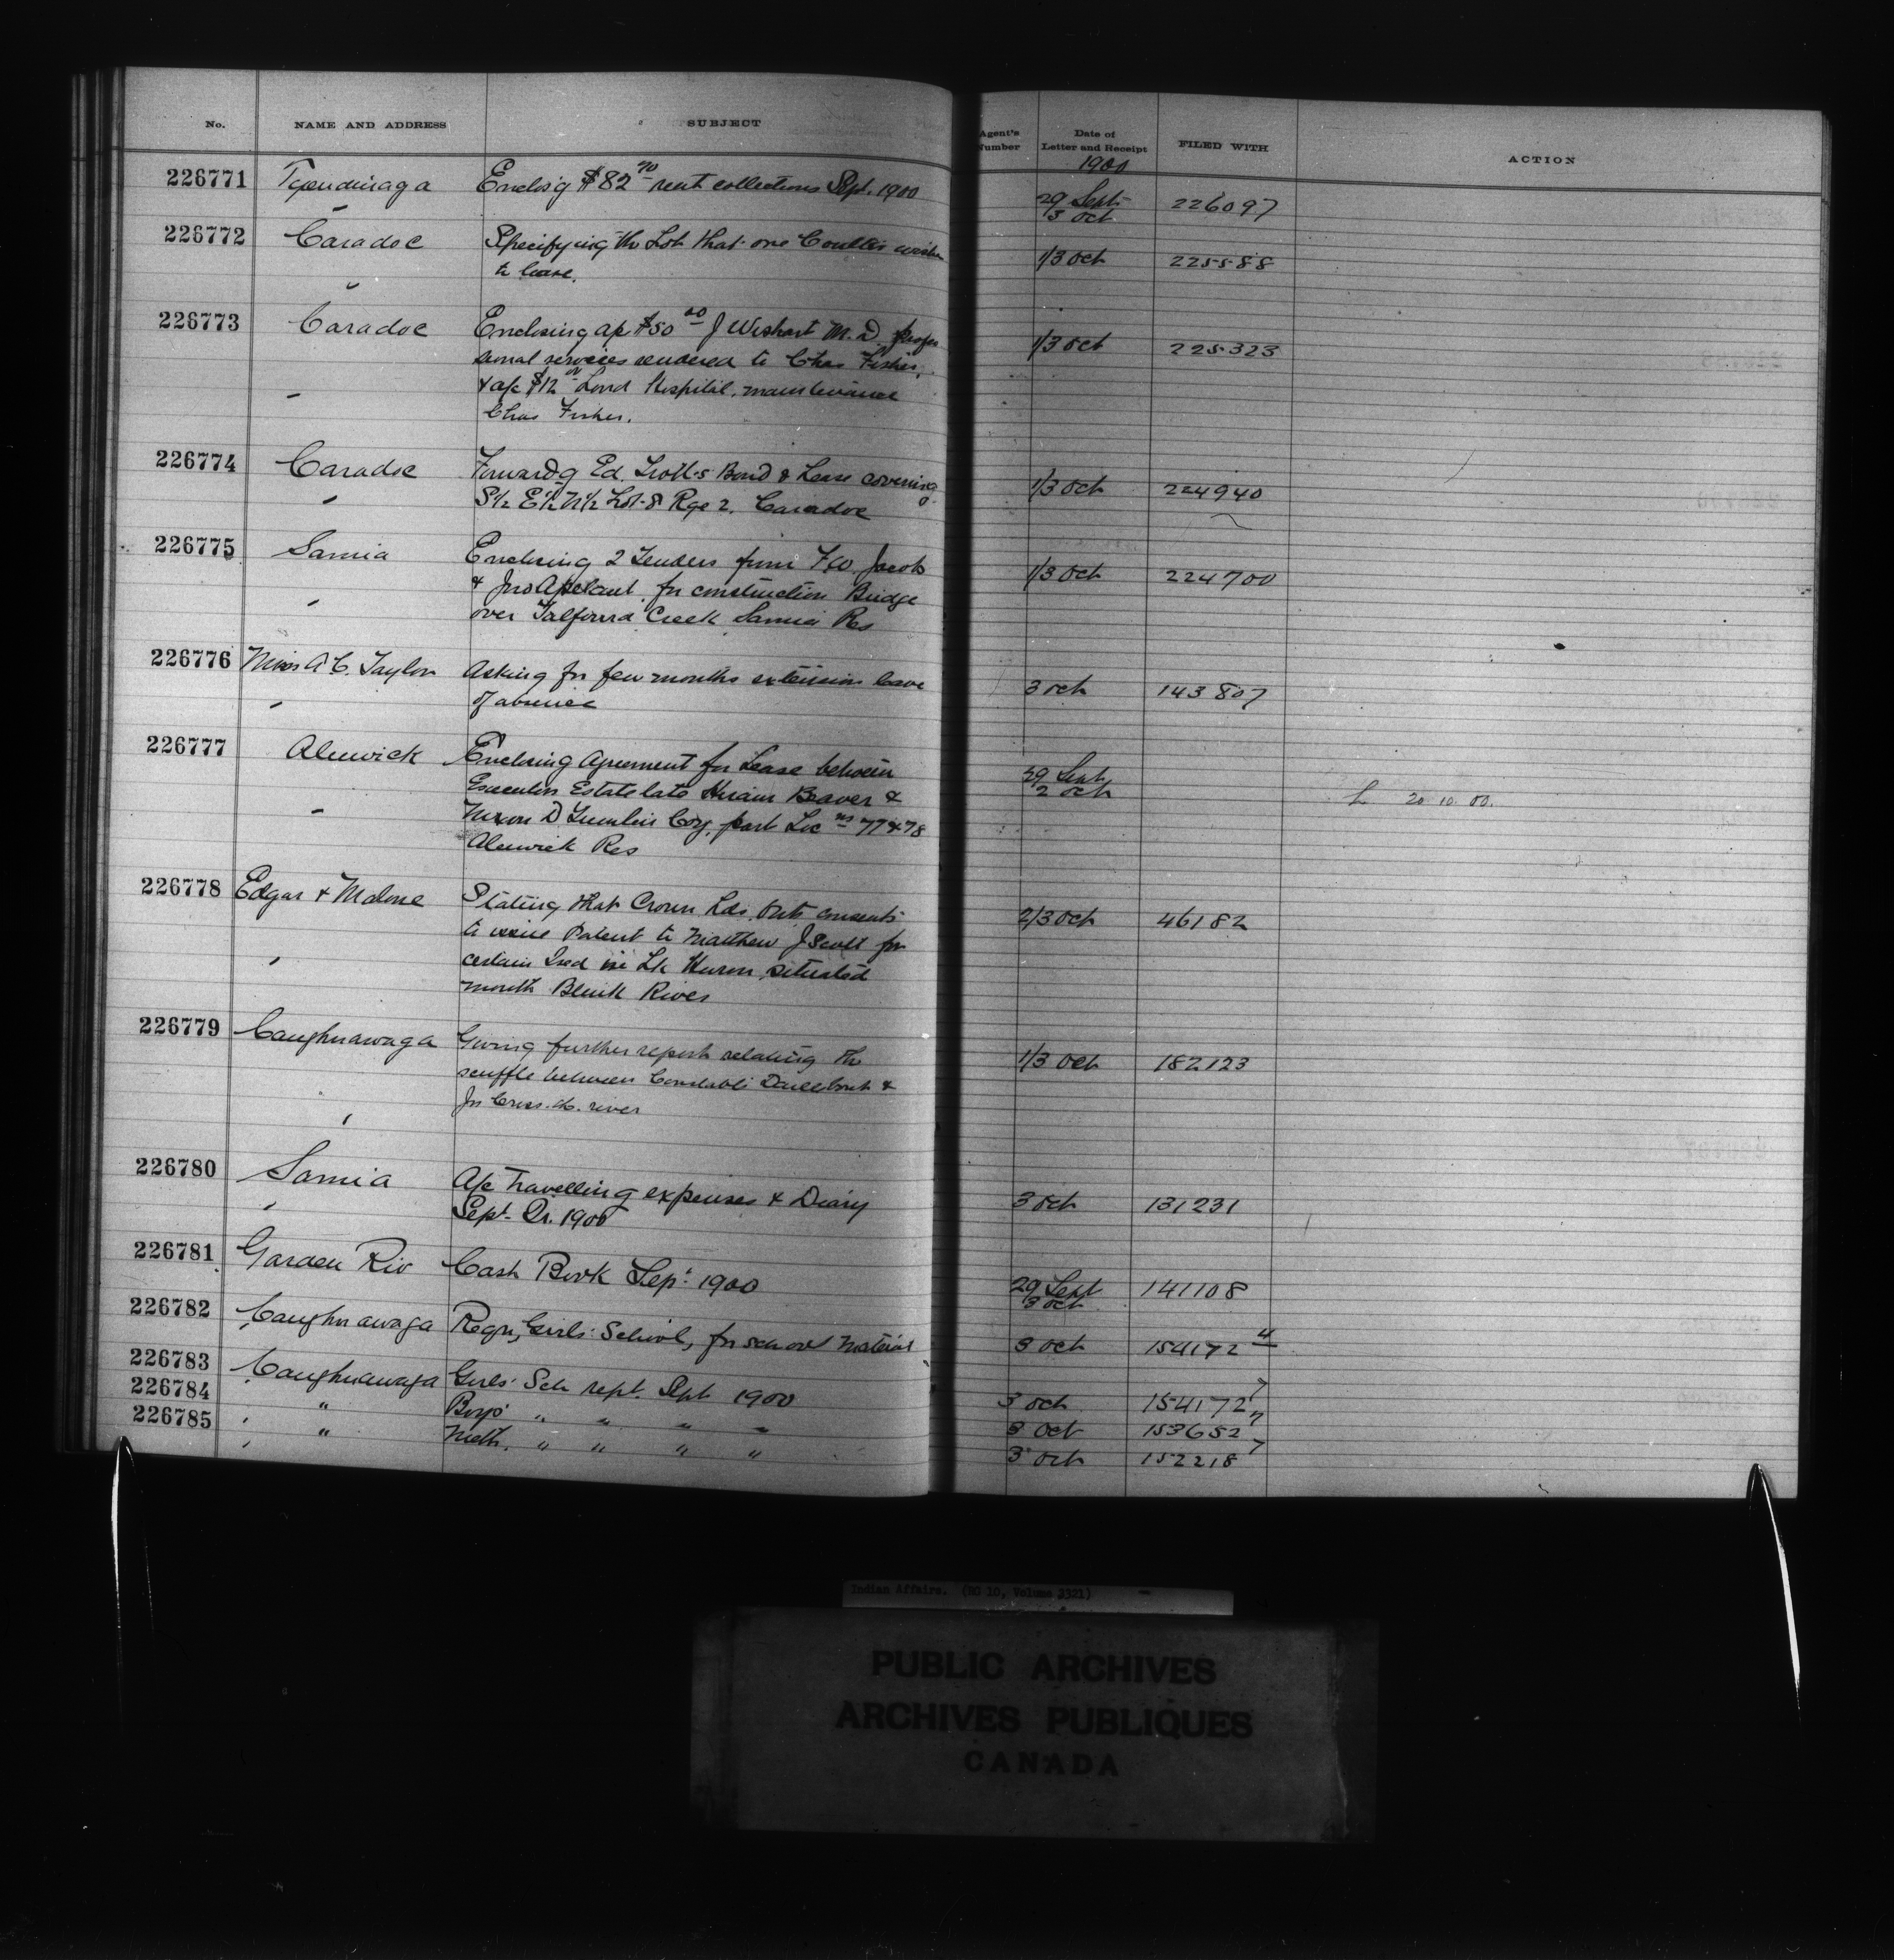 No. NAME AND ADDRESS SUBJECT Agent's Number Date of Letter and Receipt FILED WITH ACTION
1900
226771 Tyendinaga Enclos'g $82 70 rent collections Sept. 1900 29 Sept 3 Oct 226097
226772 Caradoc Specifying the Lot that one Coulter wishes 1/3 Oct 225588
to lease.
226773 Caradoc Enclosing a/c $50 00 J Wishart M.D. profes 1/3 Oct 225323
sional services rendered to Chas Fisher,
& a/c $12 Lond Hospital, maintenance
Chas Fisher.
226774 Caradoc Forward'g Ed. Trott's Bond & Lease covering 1/3 Oct 224940
S½ E½ N½ Lot 8 Rge 2. Caradoc
226775 Sarnia Enclosing 2 Tenders from F.W. Jacob 1/3 Oct 224700
& Jno for construction Bridge
over Talfourd Creek Sarnia Res
226776 Miss A C. Taylor Asking for few months extension leave 3 Oct 143807
of absence
226777 Alnwick Enclosing Agreement for Lease between 29 Sept 2 Oct L 20.10.00.
Executors Estate late Hiram Beaver &
Nixon D part Loc ns 77 & 78
Alnwick Res
226778 Edgar & Malone Stating that Crown Lds. Dept. consents 2/3 Oct 46182
to issue Patent to Matthew J Scott for
certain Isd in Lk Huron situated
mouth Blink River
226779 Caughnawaga Giving further report relating the 1/3 Oct 182123
scuffle between Constable Dailebout &
Jn Cross the river
226780 Sarnia A/c Travelling expenses & Diary 3 Oct 131231
Sept. Qr. 1900
226781 Garden Riv Cash Book Sept. 1900 29 Sept 3 Oct 141108
226782 Caughnawaga Reqn, Girls' School, for school material 3 Oct 154172 4
226783 Caughnawaga Girls' Sch rept. Sept 1900 3 Oct 154172 7
226784 " Boys' " " " " 3 Oct 153652 7
226785 " Meth. " " " " 3 Oct 152218 7
Indian Affairs. (RG 10, Volume 3321)
PUBLIC ARCHIVES
ARCHIVES PUBLIQUES
CANADA